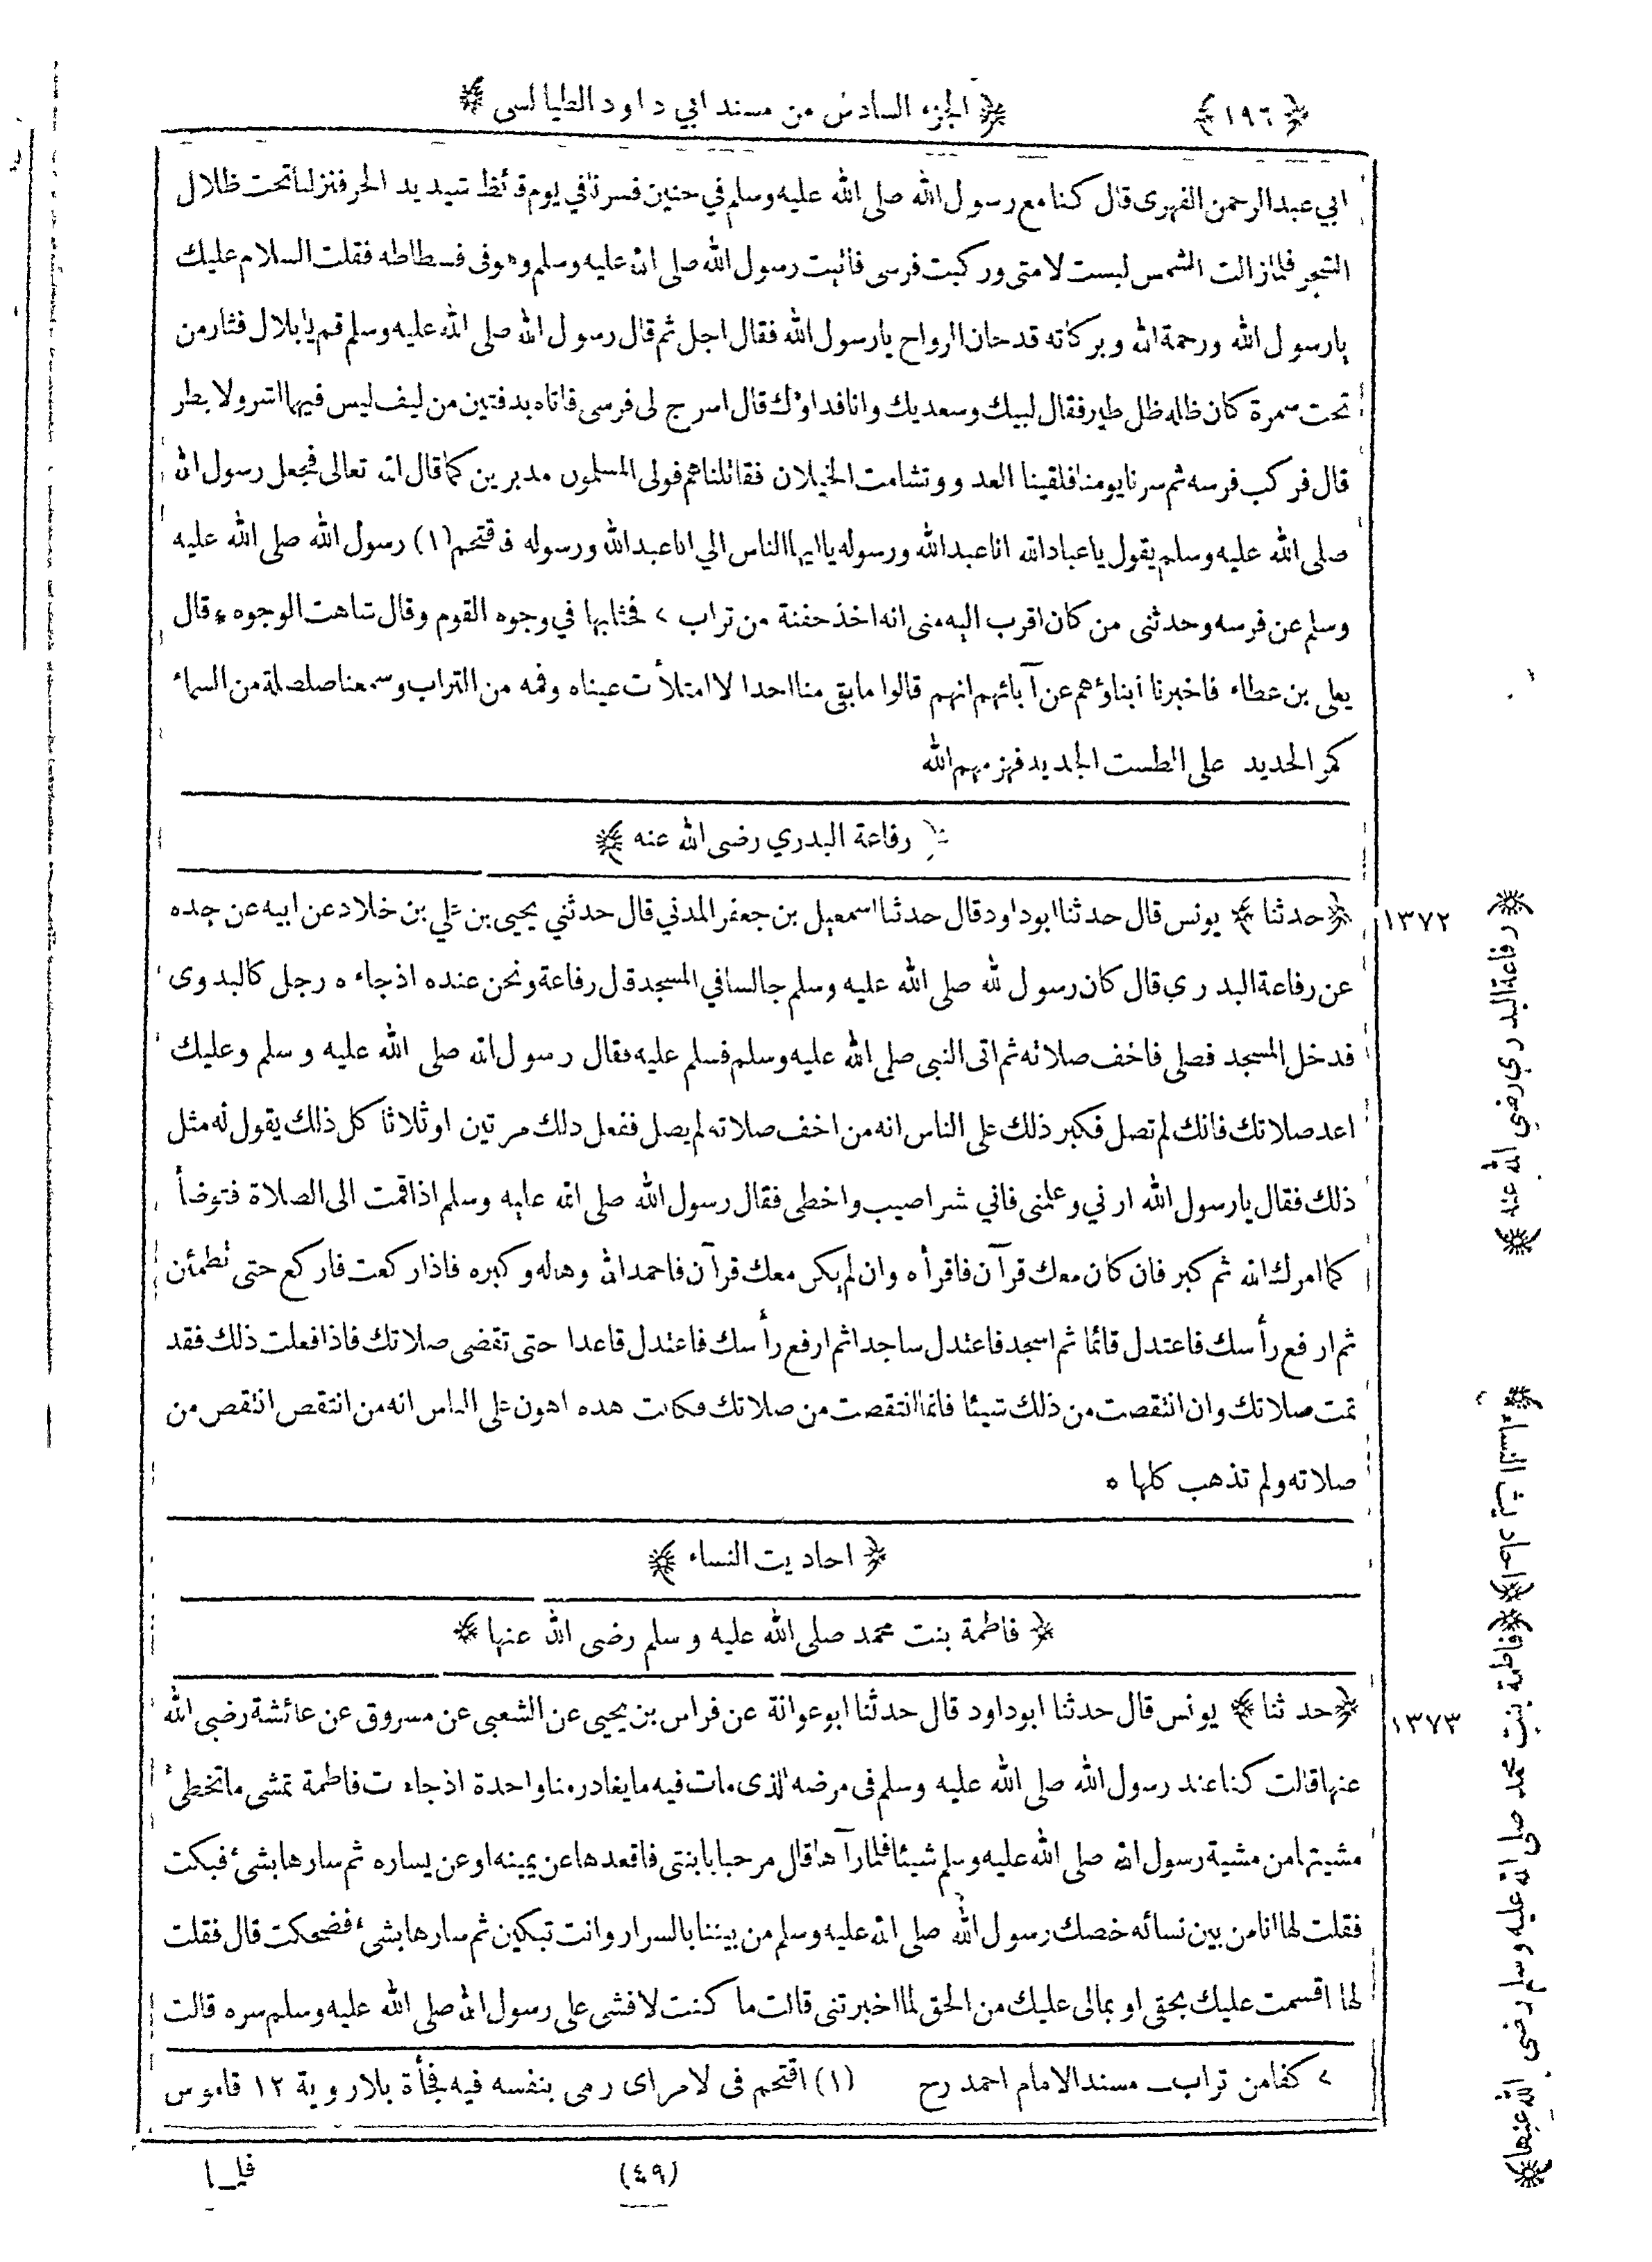 ﴿ ١٩٦ ﴾ ﴿ الجزء السادس من مسند ابي داود الطيالسى ﴾
ابي عبدالرحمن الفهرى قال كنا مع رسول الله صلى الله عليه وسلم في حنين فسرنا في يوم قائظ شديد الحر فنزلنا تحت ظلال
الشجر فلما زالت الشمس لبست لامتى وركبت فرسى فاتيت رسول الله صلى الله عليه وسلم وهو فى فسطاطه فقلت السلام عليك
يا رسول الله ورحمة الله وبركاته قد حان الرواح يا رسول الله فقال اجل ثم قال رسول الله صلى الله عليه وسلم قم يا بلال فثار من
تحت سمرة كان ظله ظل طير فقال لبيك وسعديك وانا فداؤك قال اسرج لى فرسى فاتاه بدفتين من ليف ليس فيها اشر ولا بطر
قال فركب فرسه ثم سرنا يومنا فلقينا العدو وتشامت الخيلان فقاتلناهم فولى المسلمون مدبرين كما قال الله تعالى فجعل رسول الله
صلى الله عليه وسلم يقول يا عباد الله انا عبد الله ورسوله يا ايها الناس الي انا عبد الله ورسوله فاقتحم (١) رسول الله صلى الله عليه
وسلم عن فرسه وحدثنى من كان اقرب اليه منى انه اخذ حفنة من تراب › فحثا بها في وجوه القوم وقال شاهت الوجوه * قال
يعلى بن عطاء فاخبرنا ابناؤهم عن آبائهم انهم قالوا ما بقى منا احدا لا امتلأت عيناه وفمه من التراب وسمعنا صلصلة من السماء
كمر الحديد على الطست الجديد فهزمهم الله
﴿ رفاعة البدري رضى الله عنه ﴾
١٣٧٢ ﴿ حدثنا ﴾ يونس قال حدثنا ابو داود قال حدثنا اسمعيل بن جعفر المدني قال حدثني يحيى بن علي بن خلاد عن ابيه عن جده
عن رفاعة البدري قال كان رسول الله صلى الله عليه وسلم جالسا في المسجد قال رفاعة ونحن عنده اذ جاءه رجل كالبدوى
فدخل المسجد فصلى فاخف صلاته ثم اتى النبى صلى الله عليه وسلم فسلم عليه فقال رسول الله صلى الله عليه وسلم وعليك
اعد صلاتك فانك لم تصل فكبر ذلك على الناس انه من اخف صلاته لم يصل ففعل ذلك مرتين او ثلاثا كل ذلك يقول له مثل
ذلك فقال يا رسول الله ارني وعلمنى فاني بشر اصيب واخطى فقال رسول الله صلى الله عليه وسلم اذا قمت الى الصلاة فتوضأ
كما امرك الله ثم كبر فان كان معك قرآن فاقرأه وان لم يكن معك قرآن فاحمد الله وهلله وكبره فاذا ركعت فاركع حتى تطمئن
ثم ارفع رأسك فاعتدل قائما ثم اسجد فاعتدل ساجدا ثم ارفع رأسك فاعتدل قاعدا حتى تقضى صلاتك فاذا فعلت ذلك فقد
تمت صلاتك وان انتقصت من ذلك شيئا فانما انتقصت من صلاتك فكانت هذه اهون على الناس انه من انتقص انتقص من
صلاته ولم تذهب كلها ه
﴿ احاديث النساء ﴾
﴿ فاطمة بنت محمد صلى الله عليه وسلم رضى الله عنها ﴾
١٣٧٣ ﴿ حدثنا ﴾ يونس قال حدثنا ابو داود قال حدثنا ابو عوانة عن فراس بن يحيى عن الشعبى عن مسروق عن عائشة رضى الله
عنها قالت كنا عند رسول الله صلى الله عليه وسلم فى مرضه الذى مات فيه ما يغادر منا واحدة اذ جاءت فاطمة تمشى ما تخطئ
مشيتها من مشية رسول الله صلى الله عليه وسلم شيئا فلما رآها قال مرحبا بابنتى فاقعدها عن يمينه او عن يساره ثم سارها بشئ فبكت
فقلت لها انا من بين نسائه خصك رسول الله صلى الله عليه وسلم من بيننا بالسرار وانت تبكين ثم سارها بشئ فضحكت قال فقلت
لها اقسمت عليك بحقى او بمالى عليك من الحق لما اخبرتنى قالت ما كنت لافشى على رسول الله صلى الله عليه وسلم سره قالت
› كفا من تراب ـ مسند الامام احمد رح (١) اقتحم فى لامر اى رمى بنفسه فيه فجأة بلا روية ١٢ قاموس
(٤٩) فلما
﴿ رفاعة البدري رضي الله عنه ﴾
﴿ احاديث النساء ﴾ ﴿ فاطمة بنت محمد صلى الله عليه وسلم رضى الله عنها ﴾